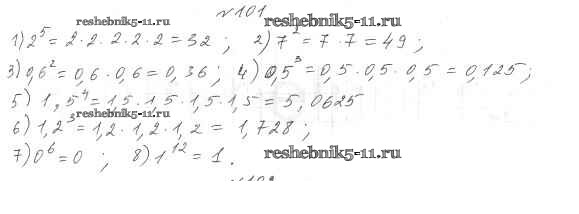 №101
reshebnik5-11.ru reshebnik5-11.ru
1) 2⁵ = 2·2·2·2·2 = 32 ; 2) 7² = 7·7 = 49 ;
3) 0,6² = 0,6·0,6 = 0,36 ; 4) 0,5³ = 0,5·0,5·0,5 = 0,125 ;
5) 1,5⁴ = 1,5·1,5·1,5·1,5 = 5,0625
reshebnik5-11.ru
6) 1,2³ = 1,2·1,2·1,2 = 1,728 ;
7) 0⁶ = 0 ; 8) 1¹² = 1 .
reshebnik5-11.ru